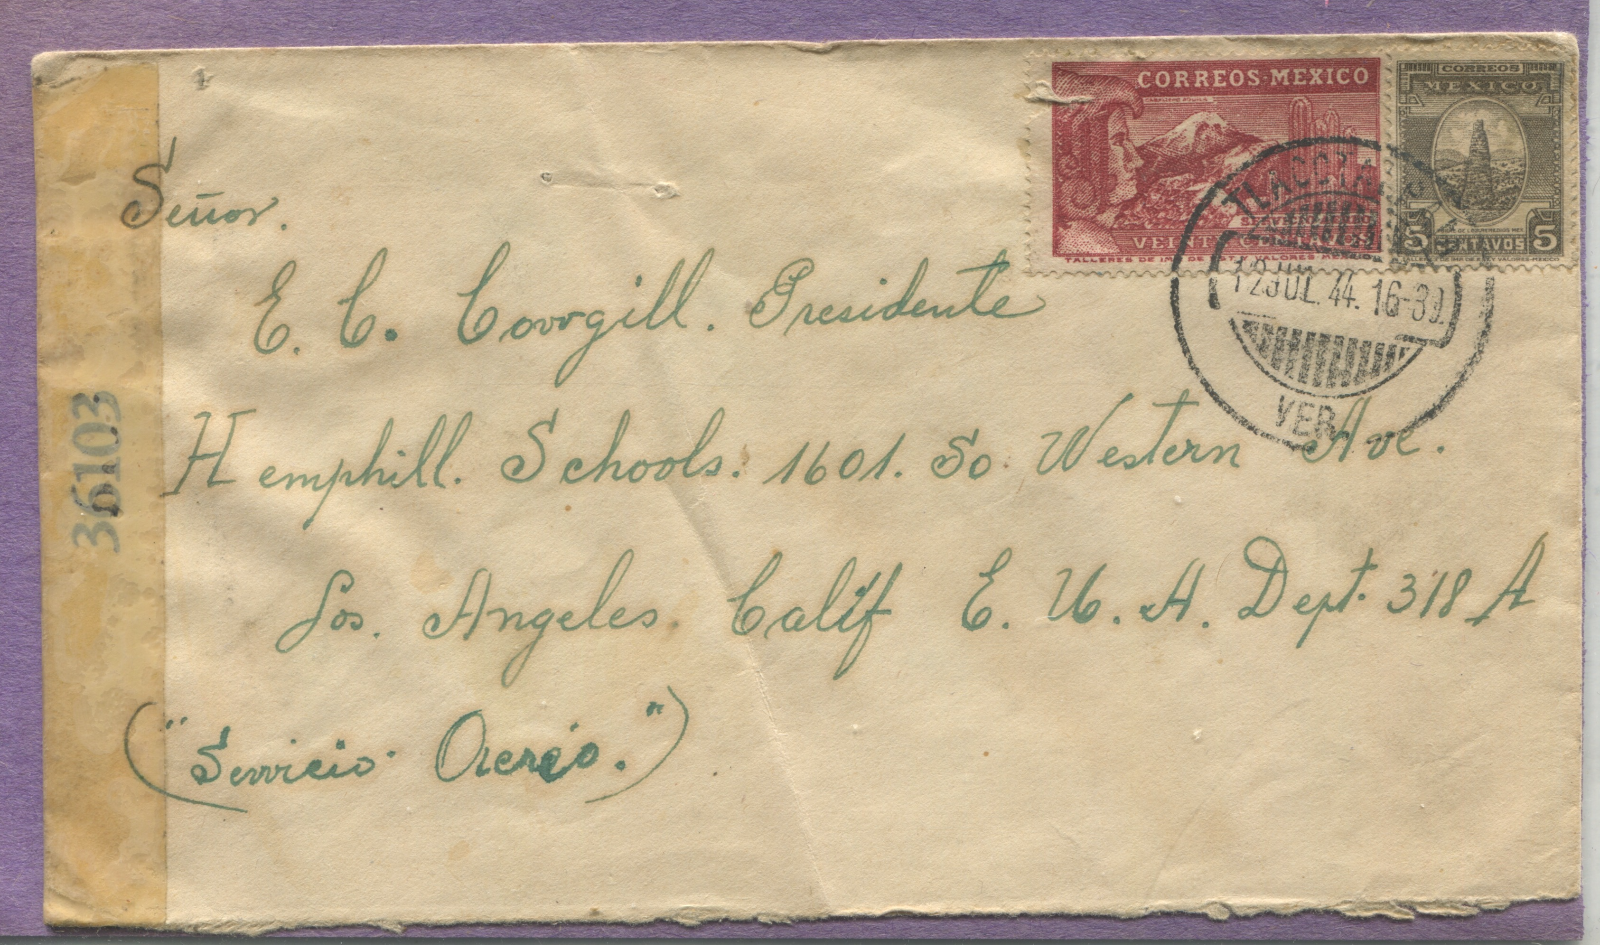 CORREOS-MEXICO
SERVICIO AEREO
VEINTE CENTAVOS
TALLERES DE IMP. DE EST. Y VALORES-MEXICO
CORREOS
MEXICO
5 CENTAVOS 5
12 JUL. 44. 16-30.
VER.
36103
Señor.
E. C. Covrgill. Presidente
Hemphill. Schools. 1601. So Western Ave.
Los. Angeles. Calif E. U. A. Dept. 318 A
("Servicio Aereo.")